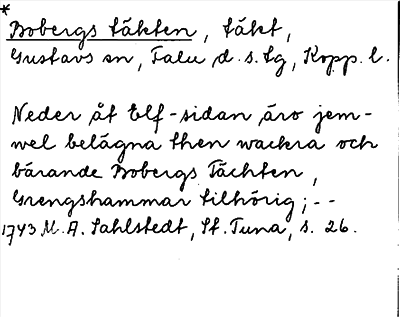 *
Bobergs täkten, täkt,
Gustavs sn, Falu d.s.lg, Kopp. l.
Neder åt Elf-sidan äro jem-
wel belägna then wackra och
bärande Bobergs Tächten,
Grengshammar tilhörig; --
1743 M. A. Sahlstedt, St. Tuna, s. 26.